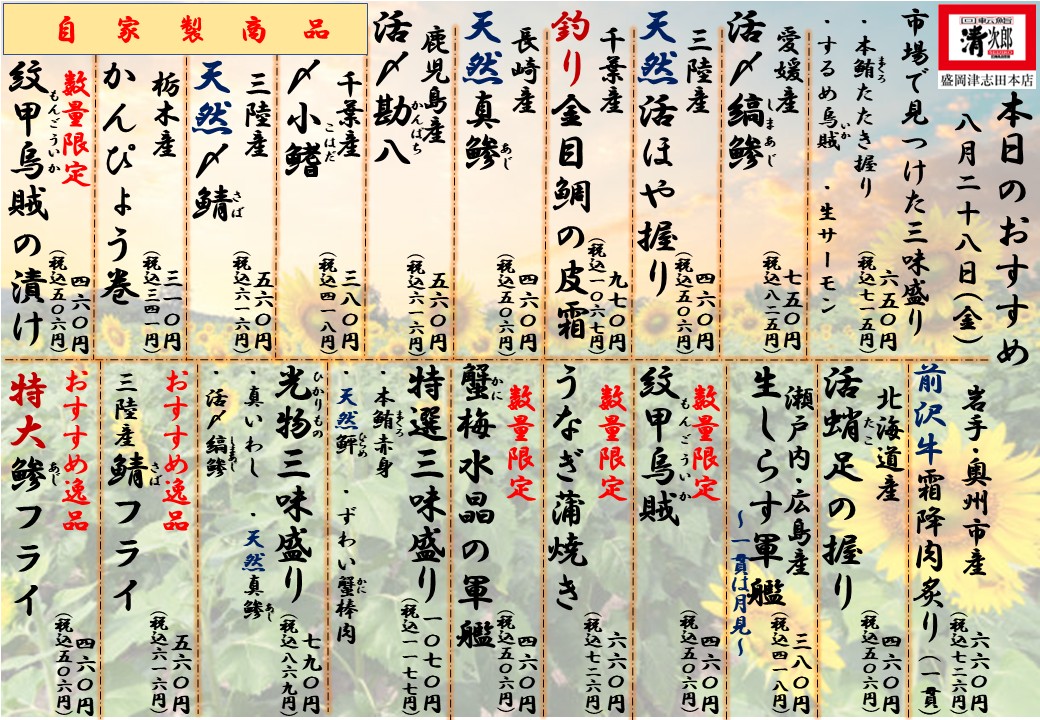 回転鮨
清次郎
SEIJIRO
盛岡津志田本店
本日のおすすめ
八月二十八日(金)
市場で見つけた三味盛り
・本鮪たたき握り
まぐろ
・するめ烏賊 ・生サーモン
いか
六五〇円
(税込七一五円)
愛媛産
活〆縞鯵
しまあじ
七五〇円
(税込八二五円)
三陸産
天然活ほや握り
四六〇円
(税込五〇六円)
千葉産
釣り金目鯛の皮霜
九七〇円
(税込一〇六七円)
長崎産
天然真鯵
あじ
四六〇円
(税込五〇六円)
鹿児島産
活〆勘八
かんぱち
五六〇円
(税込六一六円)
自家製商品
千葉産
〆小鰭
こはだ
三八〇円
(税込四一八円)
三陸産
天然〆鯖
さば
五六〇円
(税込六一六円)
栃木産
かんぴょう巻
三一〇円
(税込三四一円)
数量限定
紋甲烏賊の漬け
もんごういか
四六〇円
(税込五〇六円)
岩手・奥州市産
前沢牛霜降肉炙り(一貫)
六六〇円
(税込七二六円)
北海道産
活蛸足の握り
たこ
四六〇円
(税込五〇六円)
瀬戸内・広島産
生しらす軍艦
～一貫は月見～
三八〇円
(税込四一八円)
数量限定
紋甲烏賊
もんごういか
四六〇円
(税込五〇六円)
数量限定
うなぎ蒲焼き
六六〇円
(税込七二六円)
数量限定
蟹梅水晶の軍艦
かに
四六〇円
(税込五〇六円)
特選三味盛り
一〇七〇円
(税込一一七七円)
・本鮪赤身 ・ずわい蟹棒肉
まぐろ
かに
・天然鮃
ひらめ
光物三味盛り
ひかりもの
七九〇円
(税込八六九円)
・真いわし ・天然真鯵
あじ
・活〆縞鯵
しまあじ
おすすめ逸品
三陸産鯖フライ
さば
五六〇円
(税込六一六円)
おすすめ逸品
特大鯵フライ
あじ
四六〇円
(税込五〇六円)